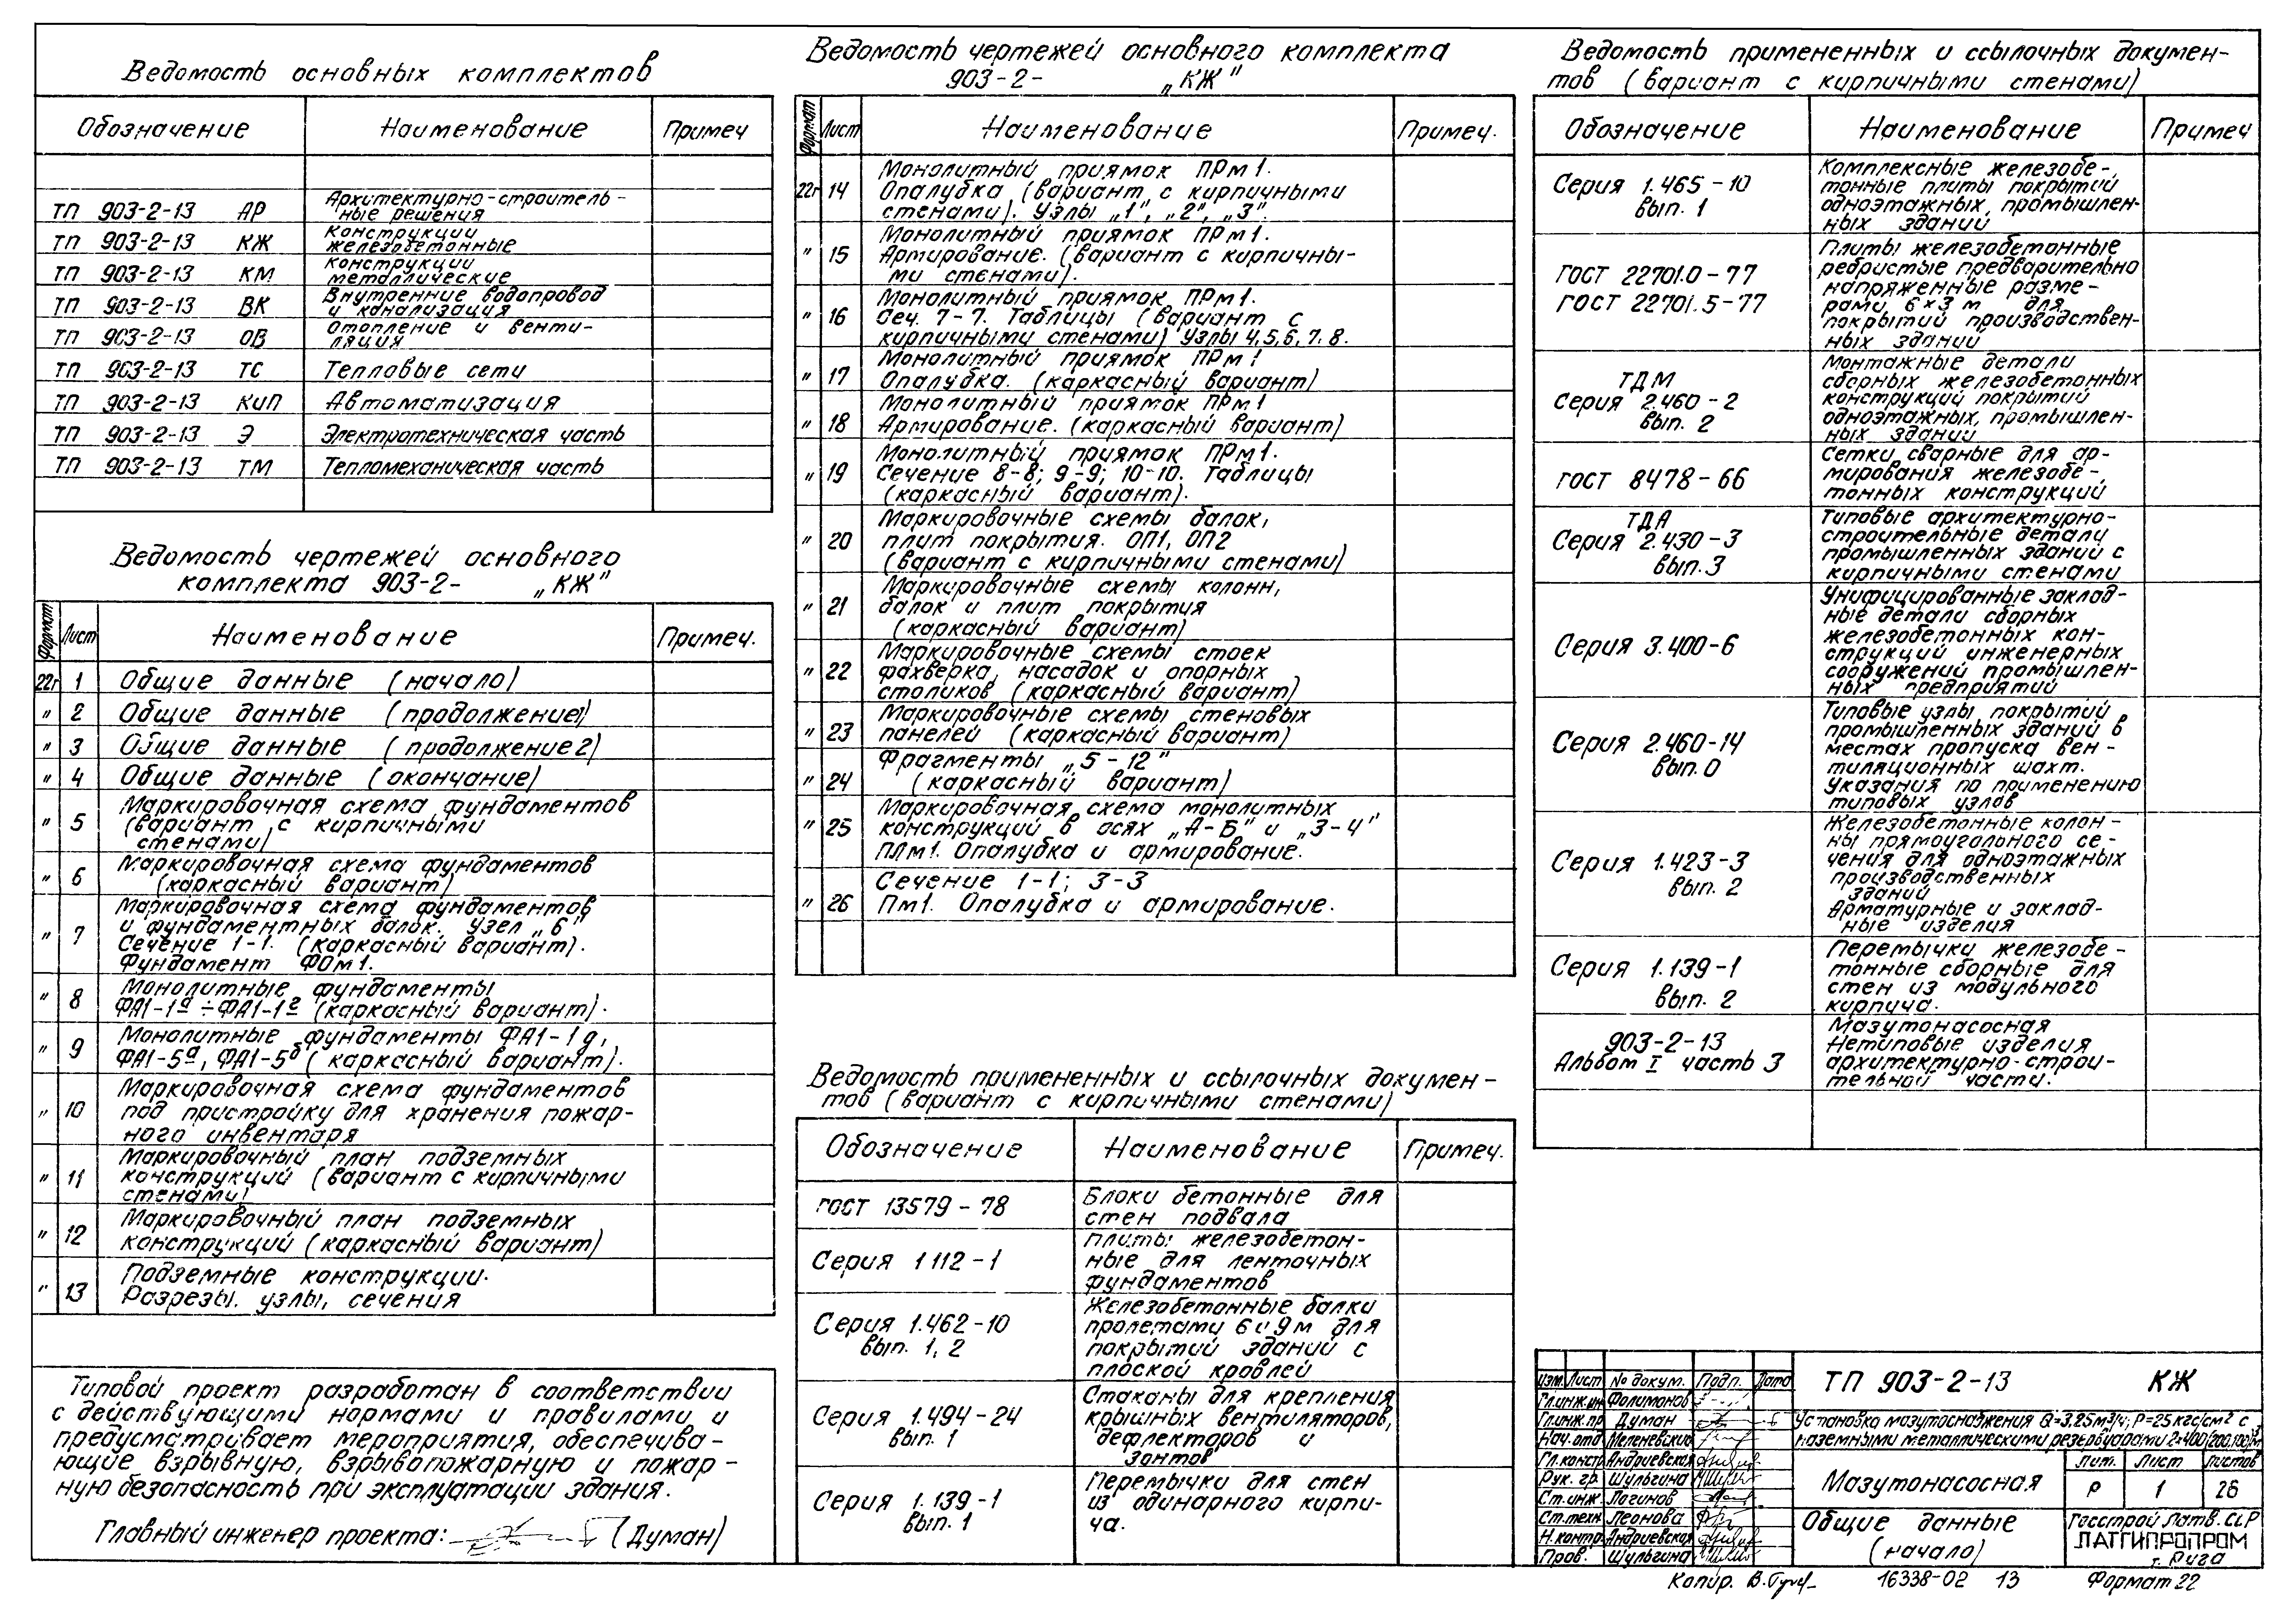 Ведомость основных комплектов
Обозначение Наименование Примеч
ТП 903-2-13 АР Архитектурно-строитель-
ные решения
ТП 903-2-13 КЖ Конструкции
железобетонные
ТП 903-2-13 КМ Конструкции
металлические
ТП 903-2-13 ВК Внутренние водопровод
и канализация
ТП 903-2-13 ОВ Отопление и венти-
ляция
ТП 903-2-13 ТС Тепловые сети
ТП 903-2-13 КиП Автоматизация
ТП 903-2-13 Э Электротехническая часть
ТП 903-2-13 ТМ Тепломеханическая часть
Ведомость чертежей основного
комплекта 903-2- „КЖ"
Формат Лист Наименование Примеч.
22г 1 Общие данные (начало)
" 2 Общие данные (продолжение1)
" 3 Общие данные (продолжение2)
" 4 Общие данные (окончание)
" 5 Маркировочная схема фундаментов
(вариант с кирпичными
стенами)
" 6 Маркировочная схема фундаментов
(каркасный вариант)
" 7 Маркировочная схема фундаментов
и фундаментных балок. Узел „6"
Сечение 1-1. (каркасный вариант).
Фундамент ФОм1.
" 8 Монолитные фундаменты
ФА1-1а ÷ ФА1-1г (каркасный вариант).
" 9 Монолитные фундаменты ФА1-1д,
ФА1-5а, ФА1-5б (каркасный вариант).
" 10 Маркировочная схема фундаментов
под пристройку для хранения пожар-
ного инвентаря
" 11 Маркировочный план подземных
конструкций (вариант с кирпичными
стенами)
" 12 Маркировочный план подземных
конструкций (каркасный вариант)
" 13 Подземные конструкции.
Разрезы. узлы, сечения
Типовой проект разработан в соответствии
с действующими нормами и правилами и
предусматривает мероприятия, обеспечива-
ющие взрывную, взрывопожарную и пожар-
ную безопасность при эксплуатации здания.
Главный инженер проекта: (Думан)
Ведомость чертежей основного комплекта
903-2- „КЖ"
Формат Лист Наименование Примеч.
22г 14 Монолитный приямок ПРм1.
Опалубка (вариант с кирпичными
стенами). Узлы „1", „2", „3".
" 15 Монолитный приямок ПРм1.
Армирование. (вариант с кирпичны-
ми стенами).
" 16 Монолитный приямок ПРм1.
Сеч. 7-7. Таблицы (вариант с
кирпичными стенами) Узлы 4,5,6,7,8.
" 17 Монолитный приямок ПРм1
Опалубка. (каркасный вариант)
" 18 Монолитный приямок ПРм1
Армирование. (каркасный вариант)
" 19 Монолитный приямок ПРм1.
Сечение 8-8; 9-9; 10-10. Таблицы
(каркасный вариант).
" 20 Маркировочные схемы балок,
плит покрытия. ОП1, ОП2
(вариант с кирпичными стенами)
" 21 Маркировочные схемы колонн,
балок и плит покрытия
(каркасный вариант)
" 22 Маркировочные схемы стоек
фахверка, насадок и опорных
столиков (каркасный вариант)
" 23 Маркировочные схемы стеновых
панелей (каркасный вариант)
" 24 Фрагменты „5-12"
(каркасный вариант)
" 25 Маркировочная схема монолитных
конструкций в осях „А-Б" и „3-4"
ПЛм1. Опалубка и армирование.
" 26 Сечение 1-1; 3-3
Пм1. Опалубка и армирование.
Ведомость примененных и ссылочных докумен-
тов (вариант с кирпичными стенами)
Обозначение Наименование Примеч.
ГОСТ 13579-78 Блоки бетонные для
стен подвала
Серия 1 112-1 Плиты железобетон-
ные для ленточных
фундаментов
Серия 1.462-10
вып. 1, 2
Железобетонные балки
пролетами 6 и 9м для
покрытий зданий с
плоской кровлей
Серия 1.494-24
вып. 1
Стаканы для крепления
крышных вентиляторов,
дефлекторов и
зонтов
Серия 1.139-1
вып. 1
Перемычки для стен
из одинарного кирпи-
ча.
Ведомость примененных и ссылочных докумен-
тов (вариант с кирпичными стенами)
Обозначение Наименование Примеч
Серия 1.465-10
вып. 1
Комплексные железобе-
тонные плиты покрытий
одноэтажных, промышлен-
ных зданий
ГОСТ 22701.0-77
ГОСТ 22701.5-77
Плиты железобетонные
ребристые предварительно
напряженные разме-
рами 6×3 м для
покрытий производствен-
ных зданий
ТДМ
Серия 2.460-2
вып. 2
Монтажные детали
сборных железобетонных
конструкций покрытий
одноэтажных, промышлен-
ных зданий
ГОСТ 8478-66
Сетки сварные для ар-
мирования железобе-
тонных конструкций
ТДА
Серия 2.430-3
вып. 3
Типовые архитектурно-
строительные детали
промышленных зданий с
кирпичными стенами
Серия 3.400-6
Унифицированные заклад-
ные детали сборных
железобетонных кон-
струкций инженерных
сооружений промышлен-
ных предприятий
Серия 2.460-14
вып. 0
Типовые узлы покрытий
промышленных зданий в
местах пропуска вен-
тиляционных шахт.
Указания по применению
типовых узлов
Серия 1.423-3
вып. 2
Железобетонные колон-
ны прямоугольного се-
чения для одноэтажных
производственных
зданий
Арматурные и заклад-
ные изделия
Серия 1.139-1
вып. 2
Перемычки железобе-
тонные сборные для
стен из модульного
кирпича.
903-2-13
Альбом I часть 3
Мазутонасосная
Нетиповые изделия
архитектурно-строи-
тельной части.
Изм. Лист № докум. Подп. Дата
Гл.инж.ин Фолимонов
Гл.инж.пр Думан
Нач.отд Меленевский
Гл.констр Андриевская
Рук. гр. Шульгина
Ст.инж. Логинов
Ст.техн Леонова
Н.контр. Андриевская
Пров. Шульгина
ТП 903-2-13 КЖ
Установка мазутоснабжения Q=3.25м³/ч; Р=25кгс/см² с
наземными металлическими резервуарами 2×400(200,100)м³
Мазутонасосная
Лит. Лист Листов
Р 1 26
Общие данные
(начало)
Госстрой Латв. ССР
ЛАТГИПРОПРОМ
г. Рига
Копир. 16338-02 13 Формат 22